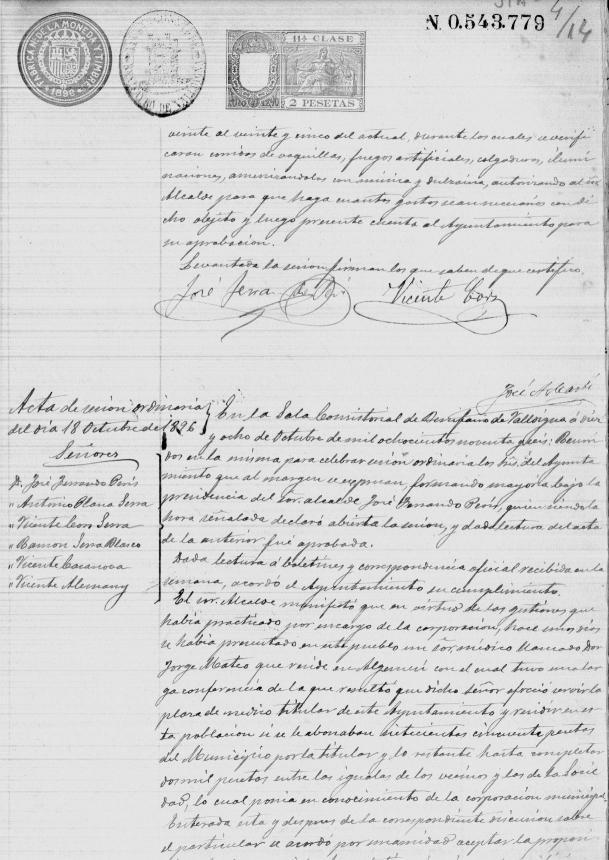 N. 0.543.779
4/14
FABRICA N. DE LA MONEDA Y TIMBRE
1896
11ª CLASE
2 PESETAS
veinte al veinte y cinco del actual, durante los cuales se verifi
caran corridas de vaquillas, fuegos artificiales, colgaduras, ilumi
naciones, amenizandolos con música y dulzaina, autorizando al Sr.
Alcalde para que haga cuantos gastos sean necesarios con di
cho objeto y luego presente cuenta al Ayuntamiento para
su aprobacion.
Levantada la sesion firman los que saben de que certifico.
José Serra
Vicente Cors
José
Acta de sesion ordinaria
del dia 18 Octubre de 1896
Señores
D. José Ferrando Peris
" Antonio Plana Serra
" Vicente Cors Serra
" Ramon Serra Blasco
" Vicente Casanova
" Vicente Alemany
En la Sala Consistorial de Benifairo de Valldigna á diez
y ocho de Octubre de mil ochocientos noventa y seis: Reuni
dos en la misma para celebrar sesion ordinaria los Srs. del Ayunta
miento que al margen se expresan, formando mayoria bajo la
presidencia del Sor. alcalde José Ferrando Peris, quien siendo la
hora señalada declaró abierta la sesion, y dada lectura del acta
de la anterior fué aprobada.
Dada lectura á boletines y correspondencia oficial recibida en la
semana, acordó el Ayuntamiento su cumplimiento.
El sor. Alcalde manifestó que en virtud de las gestiones que
habia practicado por encargo de la corporacion, hace unos dias
se habia presentado en este pueblo un Sor. médico llamado Don
Jorge Mateo que reside en Algemesí con el cual tuvo una lar
ga conferencia de la que resultó que dicho señor ofreció servir la
plaza de medico titular de este Ayuntamiento y residir en es
ta poblacion si se le abonaban setecientas cincuenta pesetas
del Municipio por la titular y lo restante hasta completar
dos mil pesetas entre las igualas de los vecinos y las de la Socie
dad, lo cual ponia en conocimiento de la corporacion municipal.
Enterada esta y despues de la correspondiente discusion sobre
el particular se acordó por unanimidad aceptar la proposi